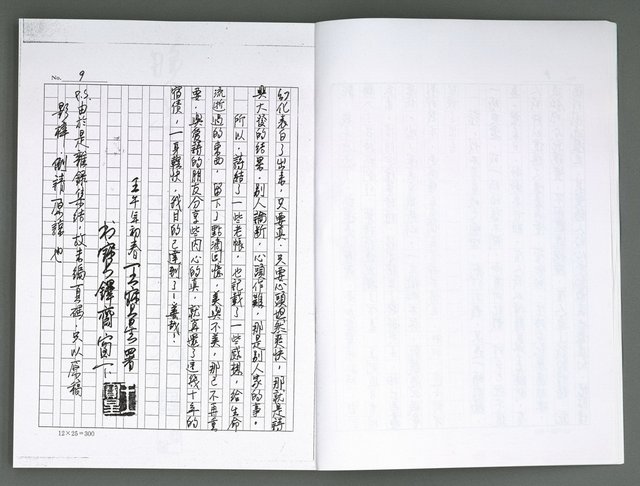 No. 9
幻化表白了出來，只要真，只要心頭坦然爽快，那就是詩
與大發的結果，別人論斷，心頭作難，那是別人家的事，
所以，詩結了一些老帳，也記載了一些感想，給生命
流逝過的東西，留下了點滴回憶，美與不美，那已不再重
要，與愛詩的朋友分享些內心的真，就算還了這幾十年的
宿債，一身輕快，我目的已達到了！善哉！
壬午年初春王寶景署
於寶鐸齋窗下
P.S.由於是雜錄集結，故未編頁碼，只以原稿
影釋，刪精原樣也
12×25=300